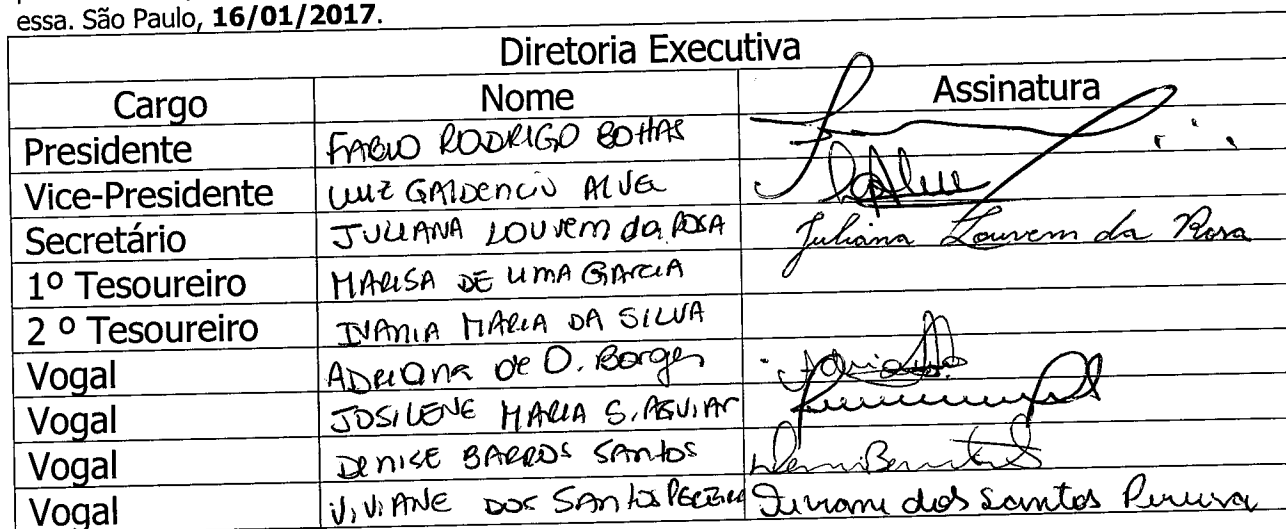 essa. São Paulo, 16/01/2017.
Diretoria Executiva
Cargo Nome Assinatura
Presidente FABIO RODRIGO BOHAS
Vice-Presidente LUIZ GALDENCIO ALVES
Secretário JULIANA LOUVEM da ROSA Juliana Louvem da Rosa
1º Tesoureiro MARISA DE LIMA GARCIA
2 º Tesoureiro IVANIA MARIA DA SILVA
Vogal ADRIANA DE O. Borges
Vogal JOSILENE MARIA S. AGUIAR
Vogal DENISE BARROS SANTOS
Vogal VIVIANE DOS SANTOS PEREIRA Viviane dos Santos Pereira